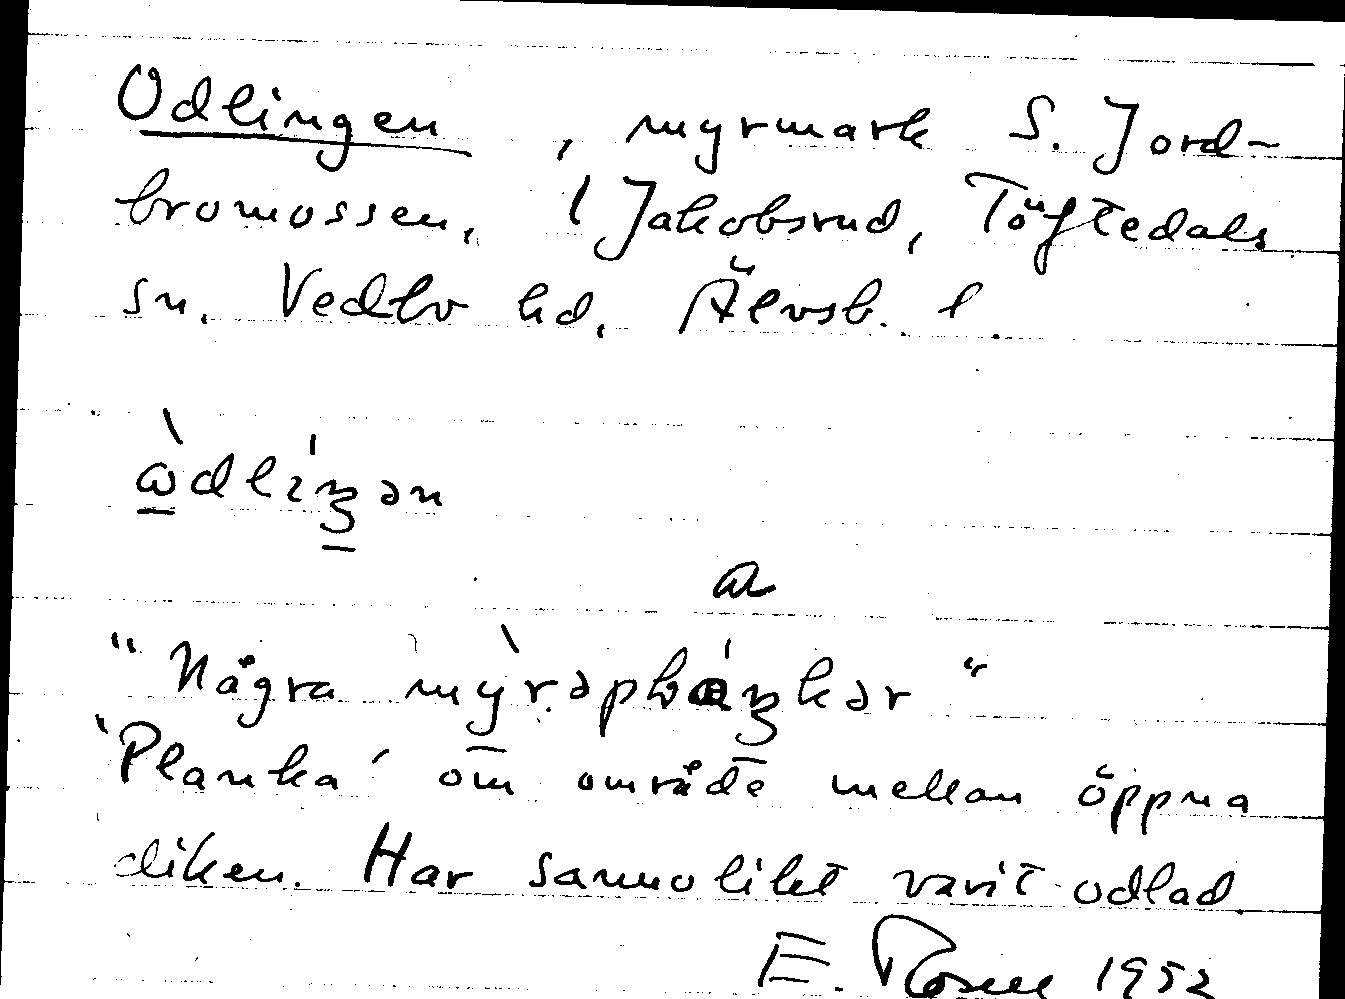 Odlingen, myrmark S. Jord-
bromossen, i Jakobsrud, Töftedals
sn. Vedbo hd. Älvsb. l.
ὼdlíŋən
a
"Några mỳrəpláŋkər"
'Planka' om område mellan öppna
diken. Har sannolikt varit odlad.
E. Rosell 1952